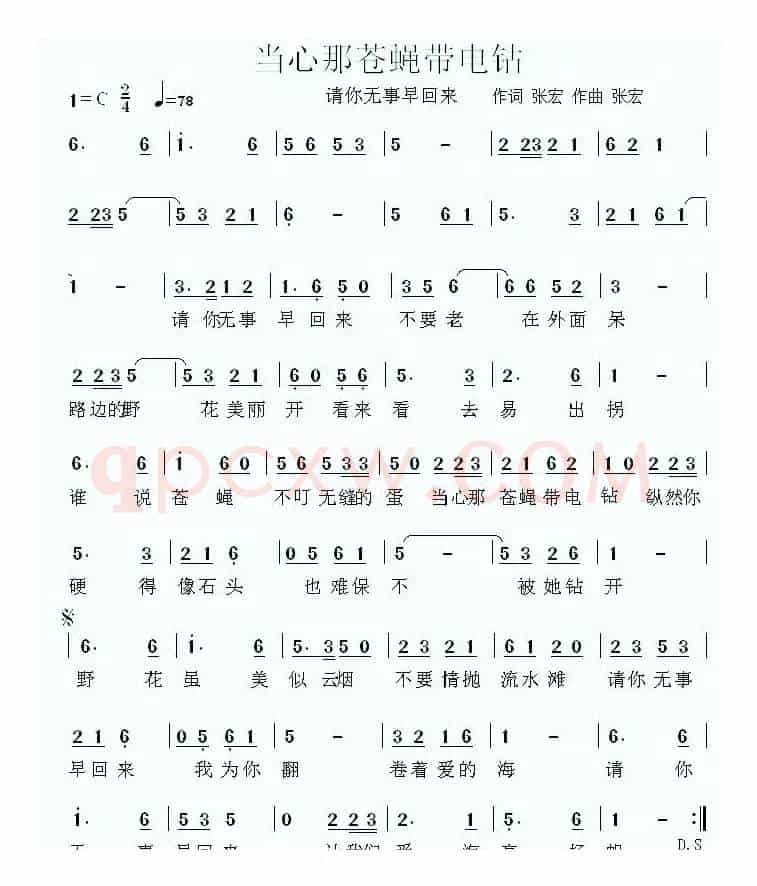 当心那苍蝇带电钻
1=C 2/4 ♩=78 请你无事早回来 作词 张宏 作曲 张宏
6. 6 | i. 6 | 5 6 5 3 | 5 - | 2 23 2 1 | 6 2 1 |
2 23 5 | 5 3 2 1 | 6 - | 5 6 1 | 5. 3 | 2 1 6 1 |
1 - | 3. 2 1 2 | 1. 6 5 0 | 3 5 6 | 6 6 5 2 | 3 - |
请 你无事 早 回 来 不 要 老 在 外 面 呆
2 2 3 5 | 5 3 2 1 | 6 0 5 6 | 5. 3 | 2. 6 | 1 - |
路边的野 花 美 丽 开 看 来 看 去 易 出 拐
6. 6 | i 6 0 | 5 6 5 3 3 | 5 0 2 2 3 | 2 1 6 2 | 1 0 2 2 3 |
谁 说 苍 蝇 不 叮 无 缝的 蛋 当心那 苍蝇带电 钻 纵然你
qpcxw.COM
5. 3 | 2 1 6 | 0 5 6 1 | 5 - | 5 3 2 6 | 1 - |
硬 得 像石头 也难保 不 被她钻 开
6. 6 | i. 6 | 5. 3 5 0 | 2 3 2 1 | 6 1 2 0 | 2 3 5 3 |
野 花 虽 美 似 云烟 不 要 情抛 流水滩 请你无事
2 1 6 | 0 5 6 1 | 5 - | 3 2 1 6 | 1 - | 6. 6 |
早回来 我为你 翻 卷着爱的 海 请 你
i. 6 | 5 3 5 | 0 2 2 3 | 2. 1 | 5. 6 | 1 - :||
D.S